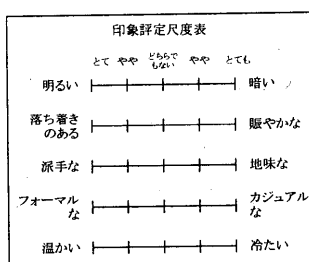 印象評定尺度表
とて やや どちらでもない やや とても
明るい 暗い
落ち着きのある 賑やかな
派手な 地味な
フォーマルな カジュアルな
温かい 冷たい